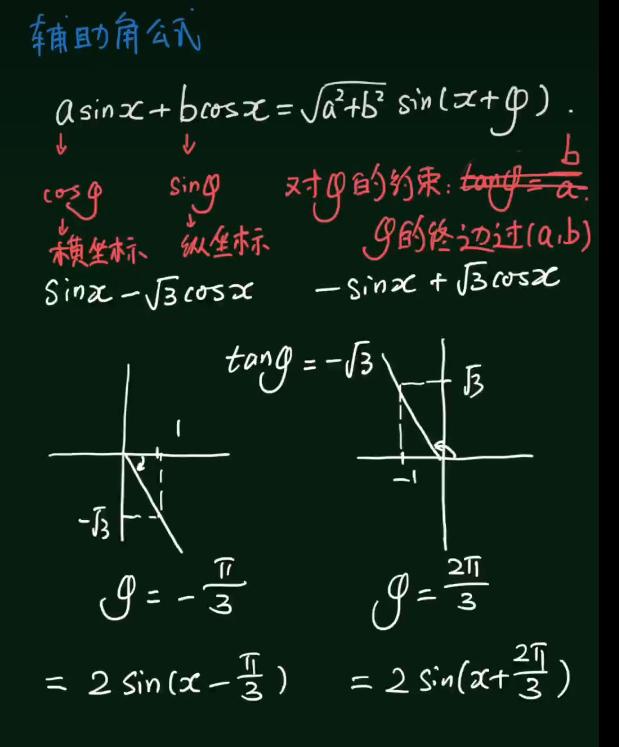 辅助角公式
asinx+bcosx=√(a²+b²) sin(x+φ).
↓ ↓
cosφ sinφ 对φ的约束:tanφ=b/a.
↓ ↓
横坐标 纵坐标 φ的终边过(a,b)
sinx-√3cosx -sinx+√3cosx
tanφ=-√3
1 √3
-√3 -1
φ=-π/3 φ=2π/3
=2sin(x-π/3) =2sin(x+2π/3)